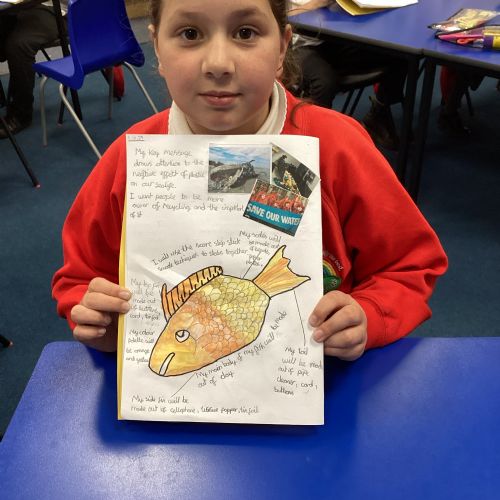 My key message
draws attention to the
negative effect of plastic
on our sealife.
I want people to be more
of recycling and the
of it
SAVE OUR WATER
My scales will
be made out
of
paper
I will use the score slip stick
technique to stick together
My top fin
will be
made out
of button,
card, tin foil
My colour
palette will
be orange
and yellow
My main body of my fish will be made
out of clay
My tail
will be made
out of pipe
cleaner, card,
buttons
My side fin will be
made out of cellophane, tissue papper, tin foil